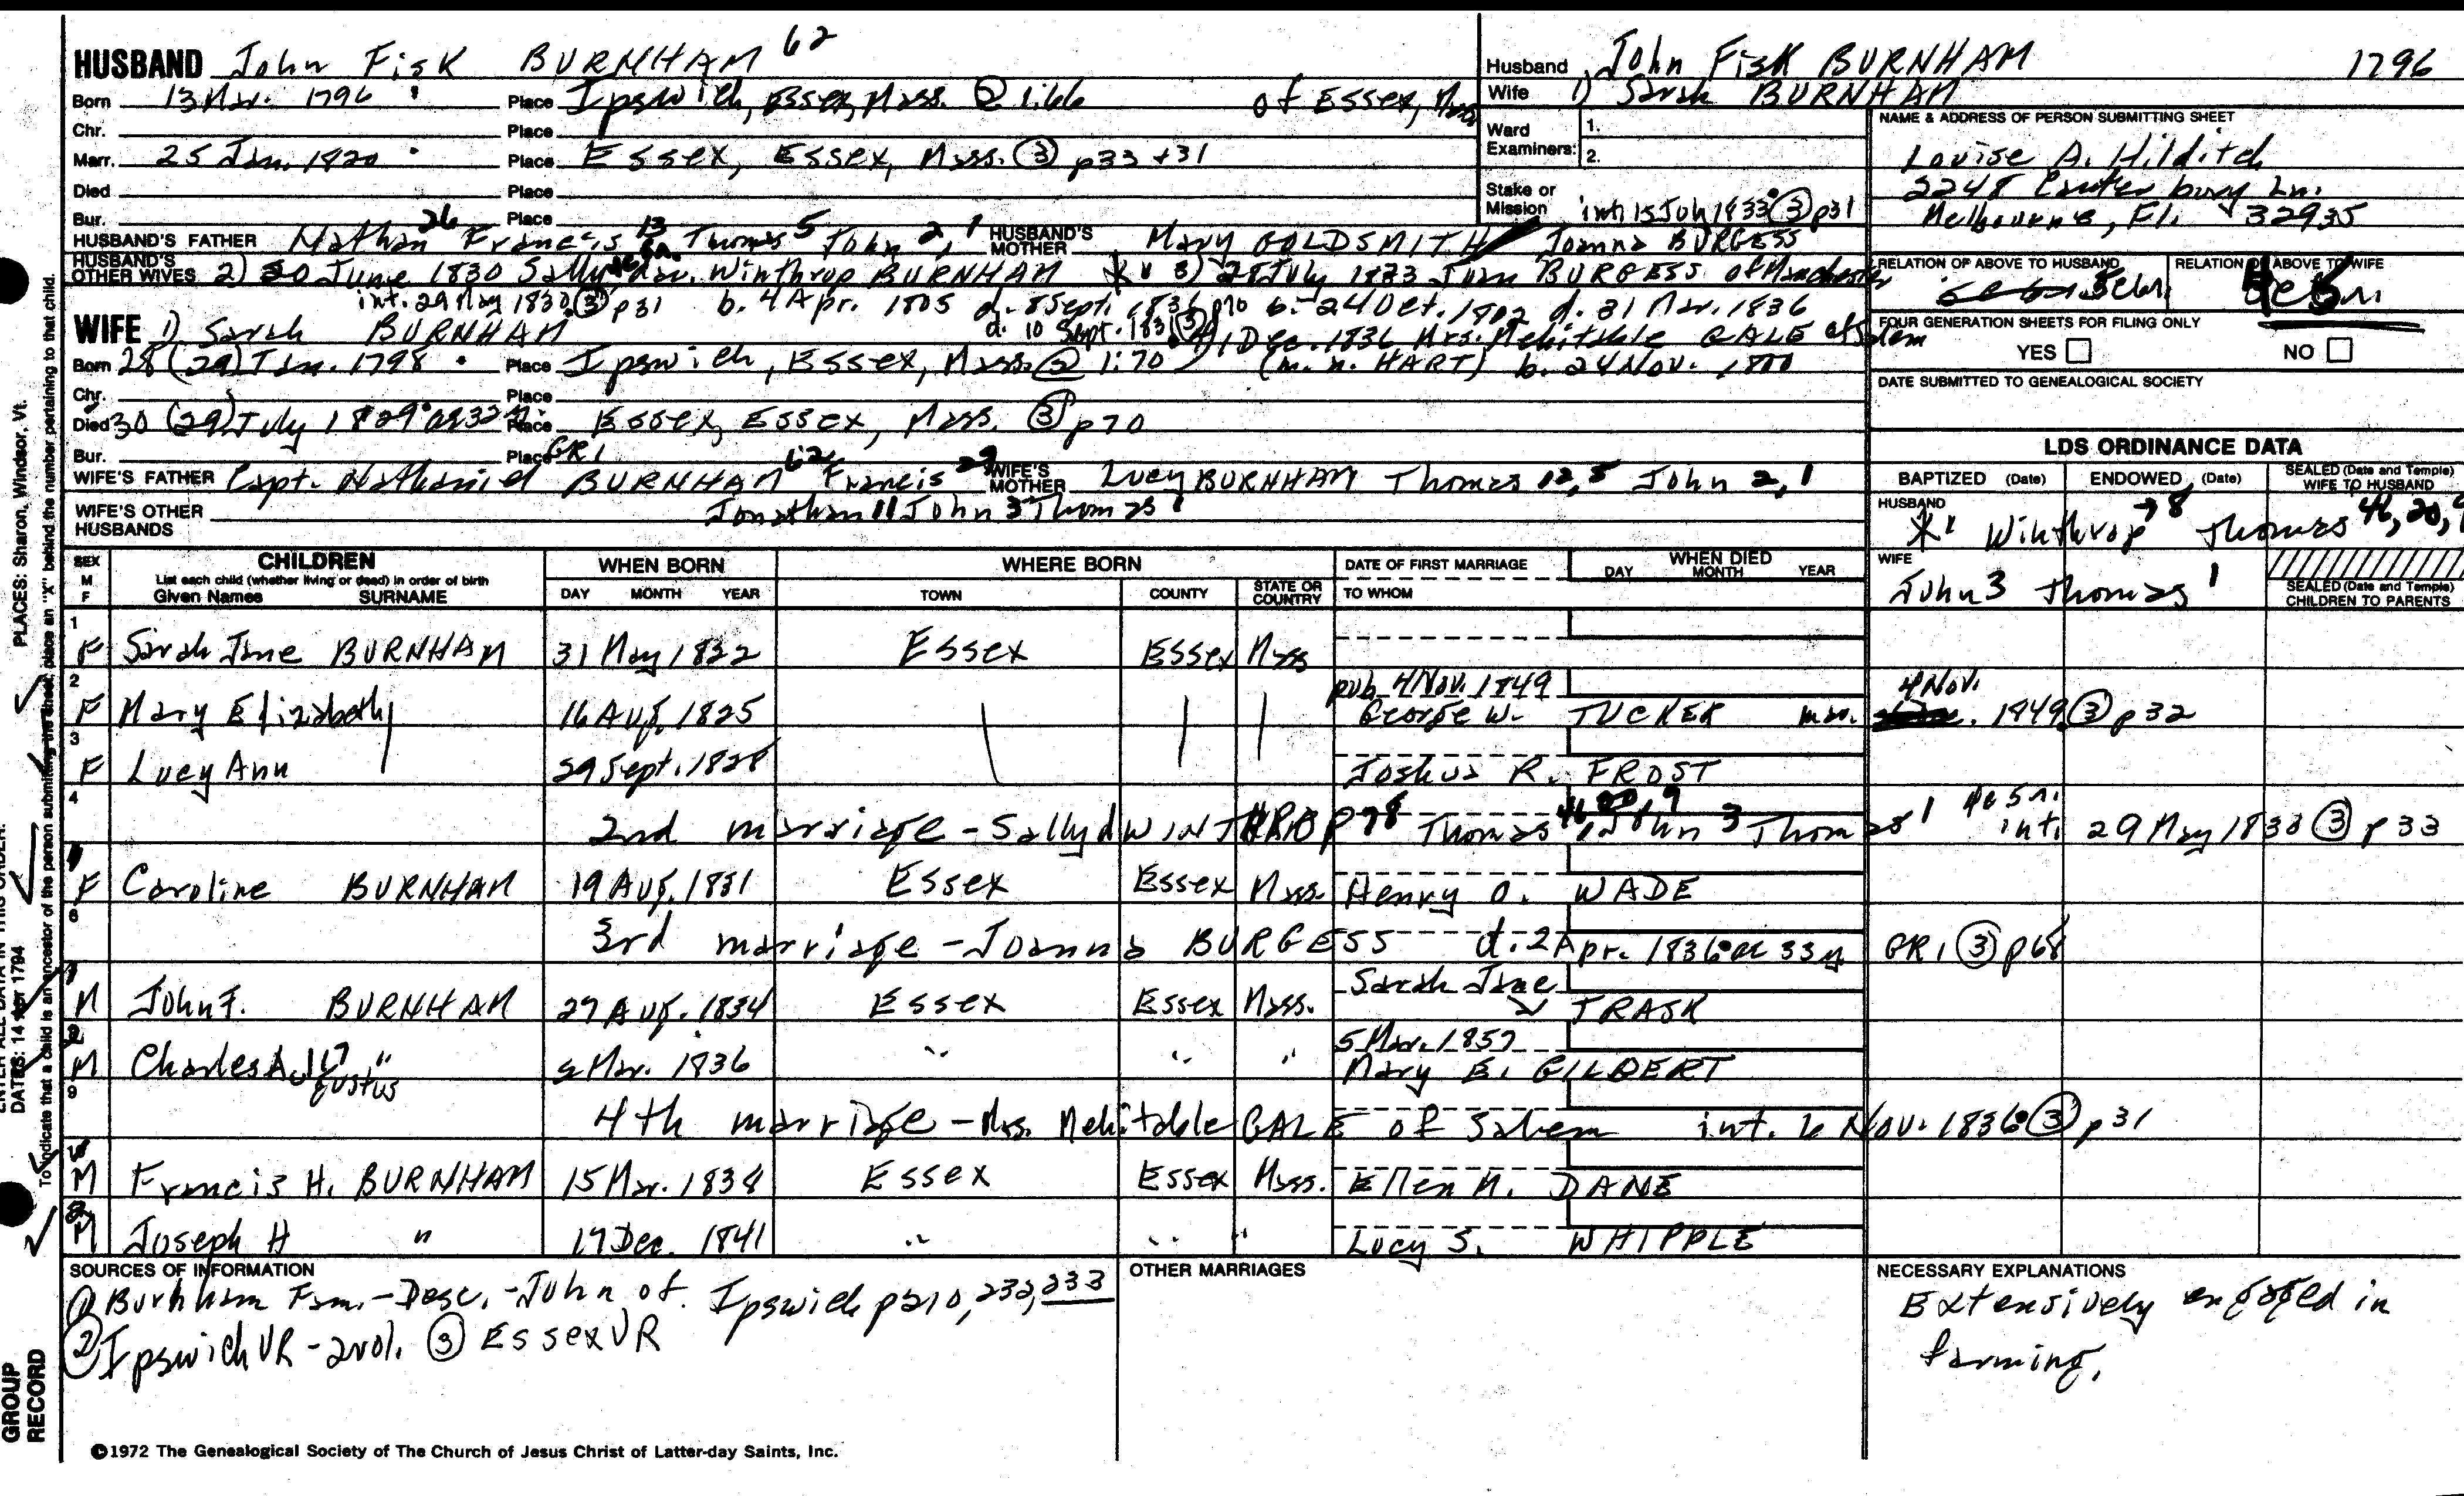 HUSBAND John Fisk BURNHAM 62
Born 13 Mar. 1796 Place Ipswich, Essex, Mass. ② 1:66 of Essex, Mass
Chr. Place
Marr. 25 Jan. 1820 Place Essex, Essex, Mass. ③ p33 +31
Died Place
Bur. Place
HUSBAND'S FATHER Nathan 26 Francis 13 Thomas 5 John 2, 1 HUSBAND'S MOTHER Mary GOLDSMITH Joanna BURGESS
HUSBAND'S OTHER WIVES 2) 30 June 1830 Sally dau. Winthrop BURNHAM 3) 28 July 1833 Joan BURGESS of Manchester
int. 29 May 1830 ③ p31 b. 4 Apr. 1805 d. 8 Sept. 1836 p70 b. 24 Oct. 1802 d. 31 Mar. 1836
d. 10 Sept. 183 ③ 4) 1 Dec. 1836 Mrs. Mehitable GALE of Salem
WIFE 1) Sarah BURNHAM
Born 28 (29) Jan. 1798 Place Ipswich, Essex, Mass. ② 1:70 (m. n. HART) b. 24 Nov. 1800
Chr. Place
Died 30 (29) July 1829 ae 32 y. Place Essex, Essex, Mass. ③ p70
Bur. Place GR1
WIFE'S FATHER Capt. Nathaniel BURNHAM 62 Francis 29 WIFE'S MOTHER Lucy BURNHAM Thomas 12, 5 John 2, 1
WIFE'S OTHER HUSBANDS Jonathan 11 John 3 Thomas 1
Husband John Fisk BURNHAM 1796
Wife 1) Sarah BURNHAM
Ward Examiners: 1. 2.
Stake or Mission int. 15 July 1833 ③ p31
NAME & ADDRESS OF PERSON SUBMITTING SHEET
Louise A. Hilditch
2248 Canterbury Ln.
Melbourne, Fl. 32935
RELATION OF ABOVE TO HUSBAND RELATION OF ABOVE TO WIFE
FOUR GENERATION SHEETS FOR FILING ONLY
YES NO
DATE SUBMITTED TO GENEALOGICAL SOCIETY
LDS ORDINANCE DATA
BAPTIZED (Date) ENDOWED (Date) SEALED (Date and Temple) WIFE TO HUSBAND
HUSBAND Winthrop 78 Thomas 46, 20, 9
WIFE John 3 Thomas 1
SEALED (Date and Temple) CHILDREN TO PARENTS
SEX M F CHILDREN List each child (whether living or dead) in order of birth Given Names SURNAME WHEN BORN DAY MONTH YEAR WHERE BORN TOWN COUNTY STATE OR COUNTRY DATE OF FIRST MARRIAGE TO WHOM WHEN DIED DAY MONTH YEAR
1 F Sarah Jane BURNHAM 31 May 1822 Essex Essex Mass
2 F Mary Elizabeth 16 Aug. 1825 pub 4 Nov. 1849 George W. TUCKER mar. 4 Nov. 1849 ③ p32
3 F Lucy Ann 29 Sept. 1828 Joshua R. FROST
4 2nd marriage - Sally d WINTHROP 78 Thomas 46 20 9 John 3 Thomas 1 int. 29 May 1830 ③ p33
F Caroline BURNHAM 19 Aug. 1831 Essex Essex Mass. Henry O. WADE
6 3rd marriage - Joanna BURGESS d. 2 Apr. 1836 ae 33 y GR1 ③ p68
M John F. BURNHAM 27 Aug. 1834 Essex Essex Mass. Sarah Jane TRASK
M Charles Augustus " Mar. 1836 " " " 5 Mar. 1857 Mary E. GILBERT
9 4th marriage - Mrs. Mehitable GALE of Salem int. 6 Nov. 1836 ③ p31
M Francis H. BURNHAM 15 Mar. 1838 Essex Essex Mass. Ellen M. DANE
M Joseph H " 17 Dec. 1841 " " " Lucy S. WHIPPLE
SOURCES OF INFORMATION
① Burnham Fam. - Desc. - John of Ipswich p210, 232, 233
② Ipswich VR - 2 vol. ③ Essex VR
OTHER MARRIAGES
NECESSARY EXPLANATIONS
Extensively engaged in
farming.
©1972 The Genealogical Society of The Church of Jesus Christ of Latter-day Saints, Inc.
PLACES: Sharon, Windsor, Vt.
DATES: 14 Apr 1794
To indicate that a child is an ancestor of the person submitting the sheet, place an "X" behind the number pertaining to that child.
GROUP
RECORD